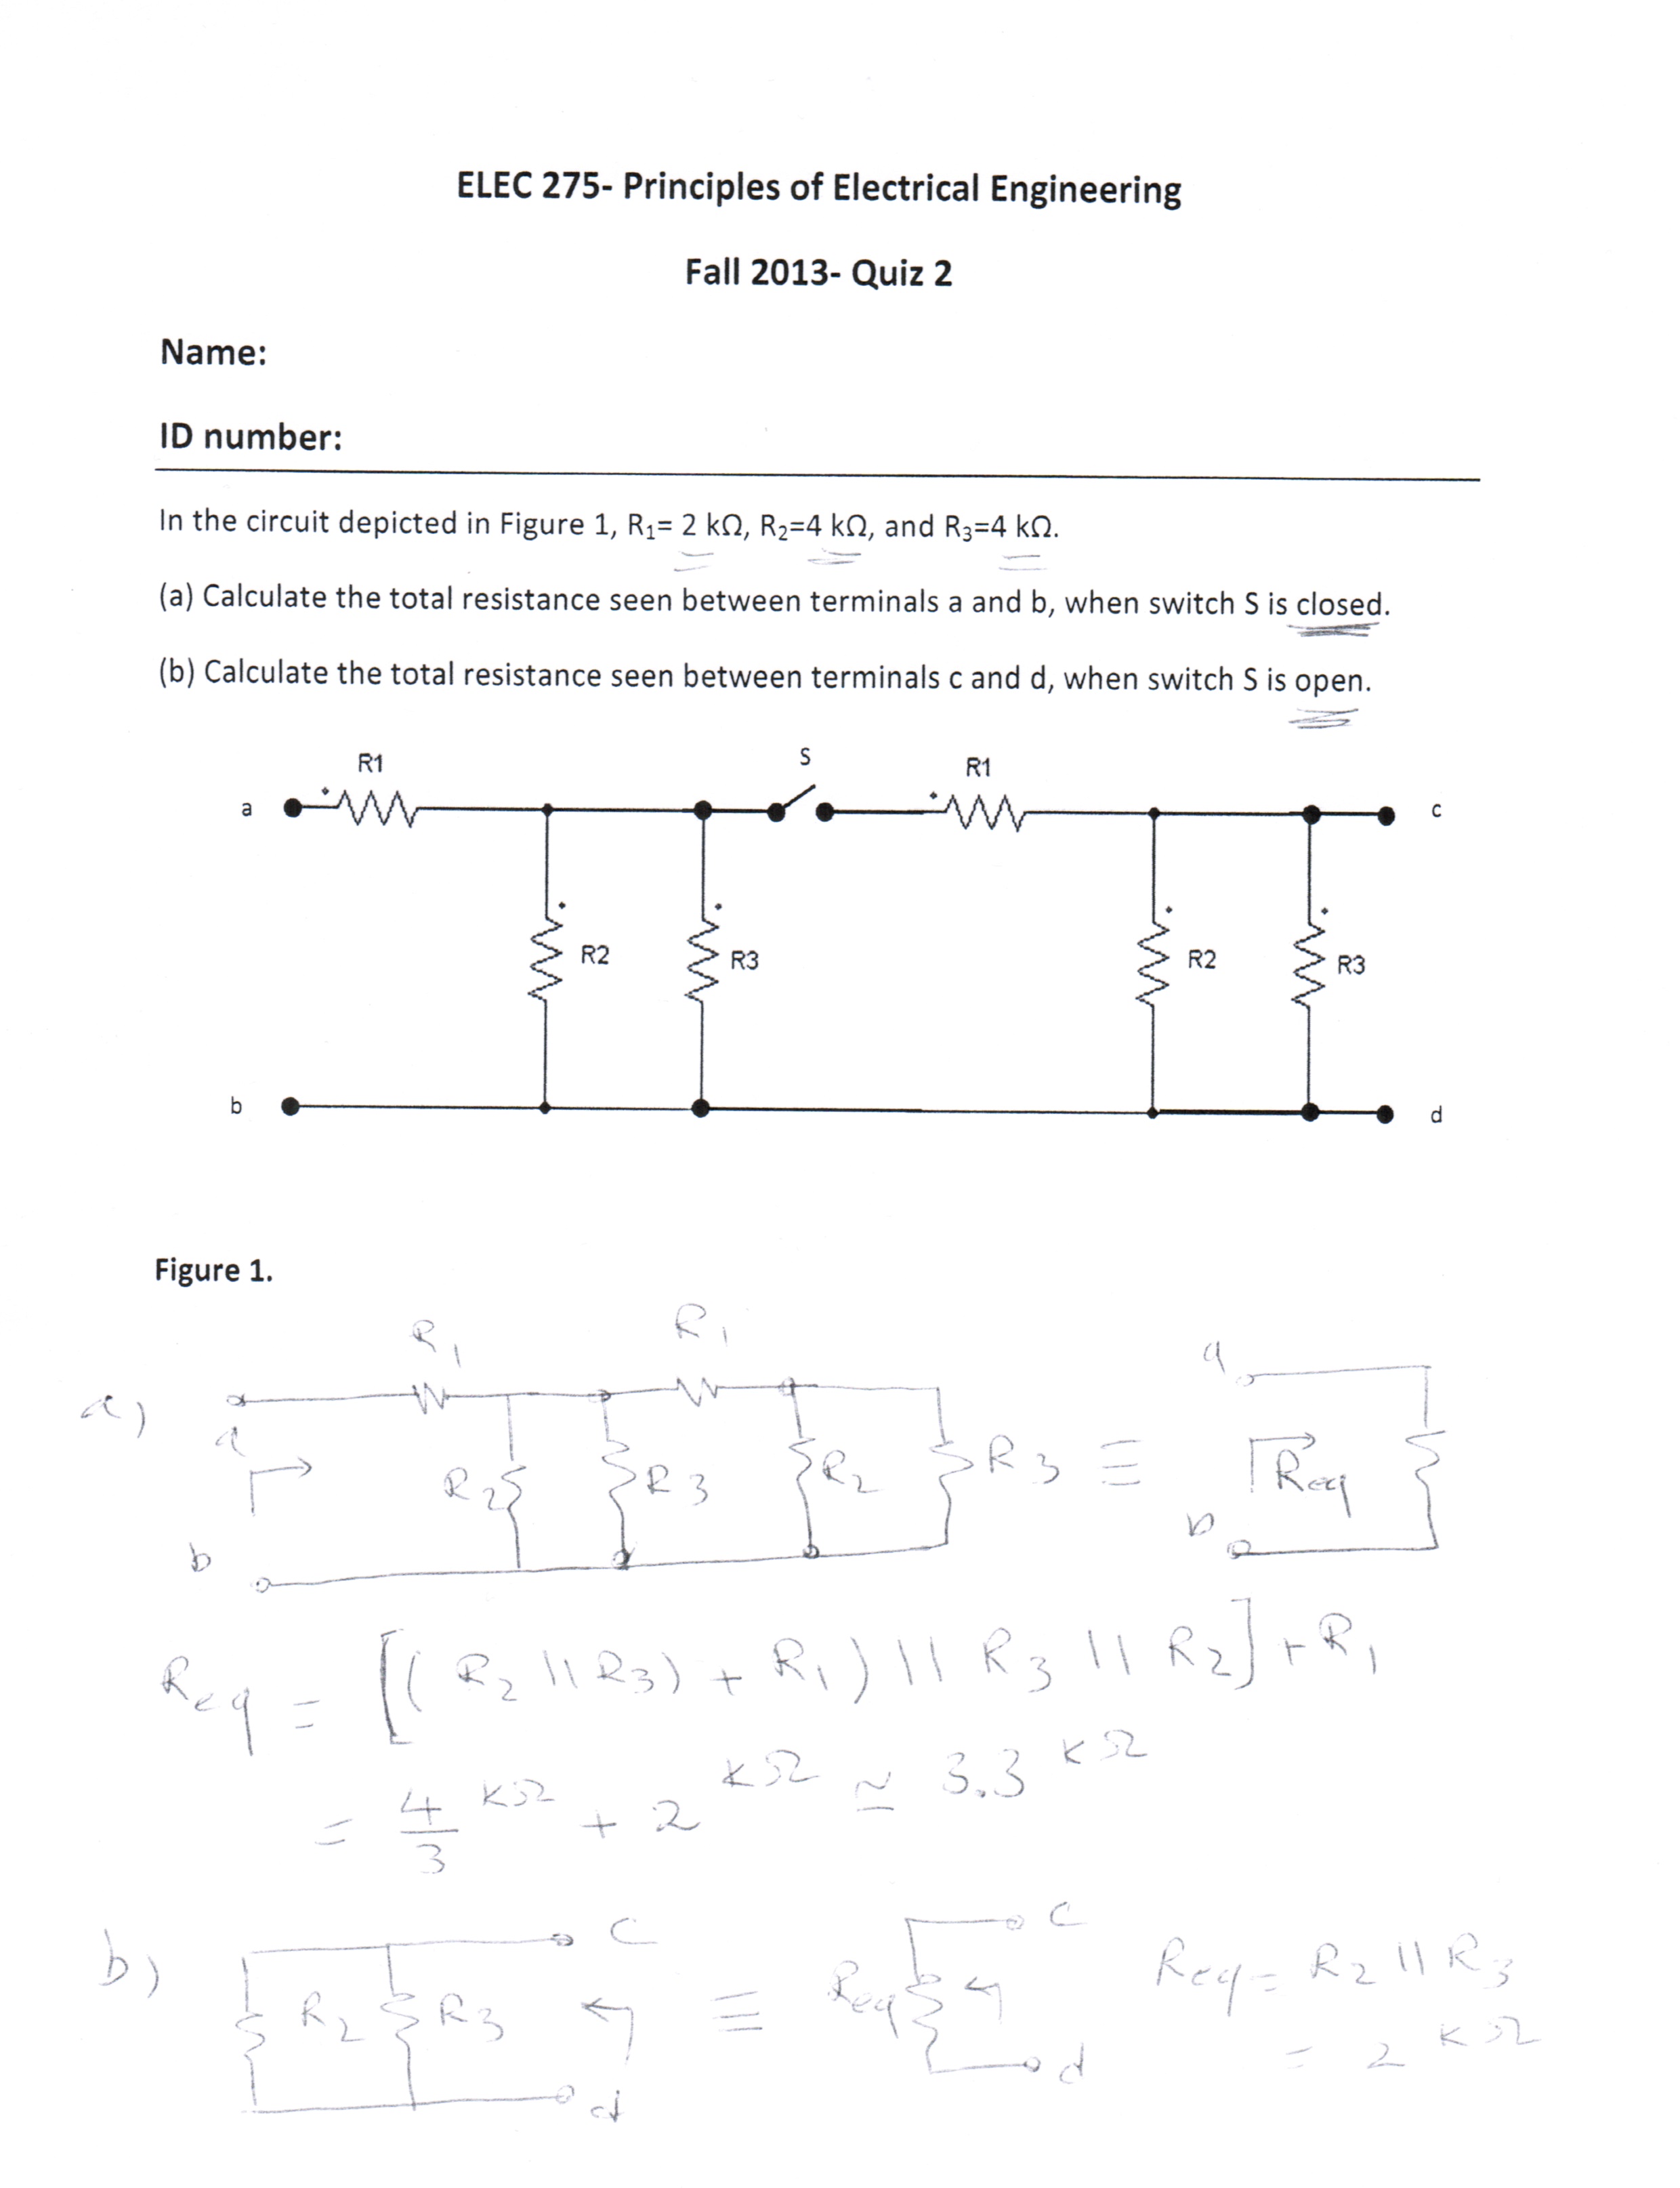 ELEC 275- Principles of Electrical Engineering
Fall 2013- Quiz 2
Name:
ID number:
In the circuit depicted in Figure 1, R₁= 2 kΩ, R₂=4 kΩ, and R₃=4 kΩ.
(a) Calculate the total resistance seen between terminals a and b, when switch S is closed.
(b) Calculate the total resistance seen between terminals c and d, when switch S is open.
R1 S R1
a c
R2 R3 R2 R3
b d
Figure 1.
R₁ R₁
a) a a
R₂ R₃ R₂ R₃ ≡ Req
b b
Req = [((R₂ || R₃) + R₁) || R₃ || R₂] + R₁
= 4/3 kΩ + 2 kΩ ≃ 3.3 kΩ
b) c c
R₂ R₃ ≡ Req Req = R₂ || R₃
= 2 kΩ
d d